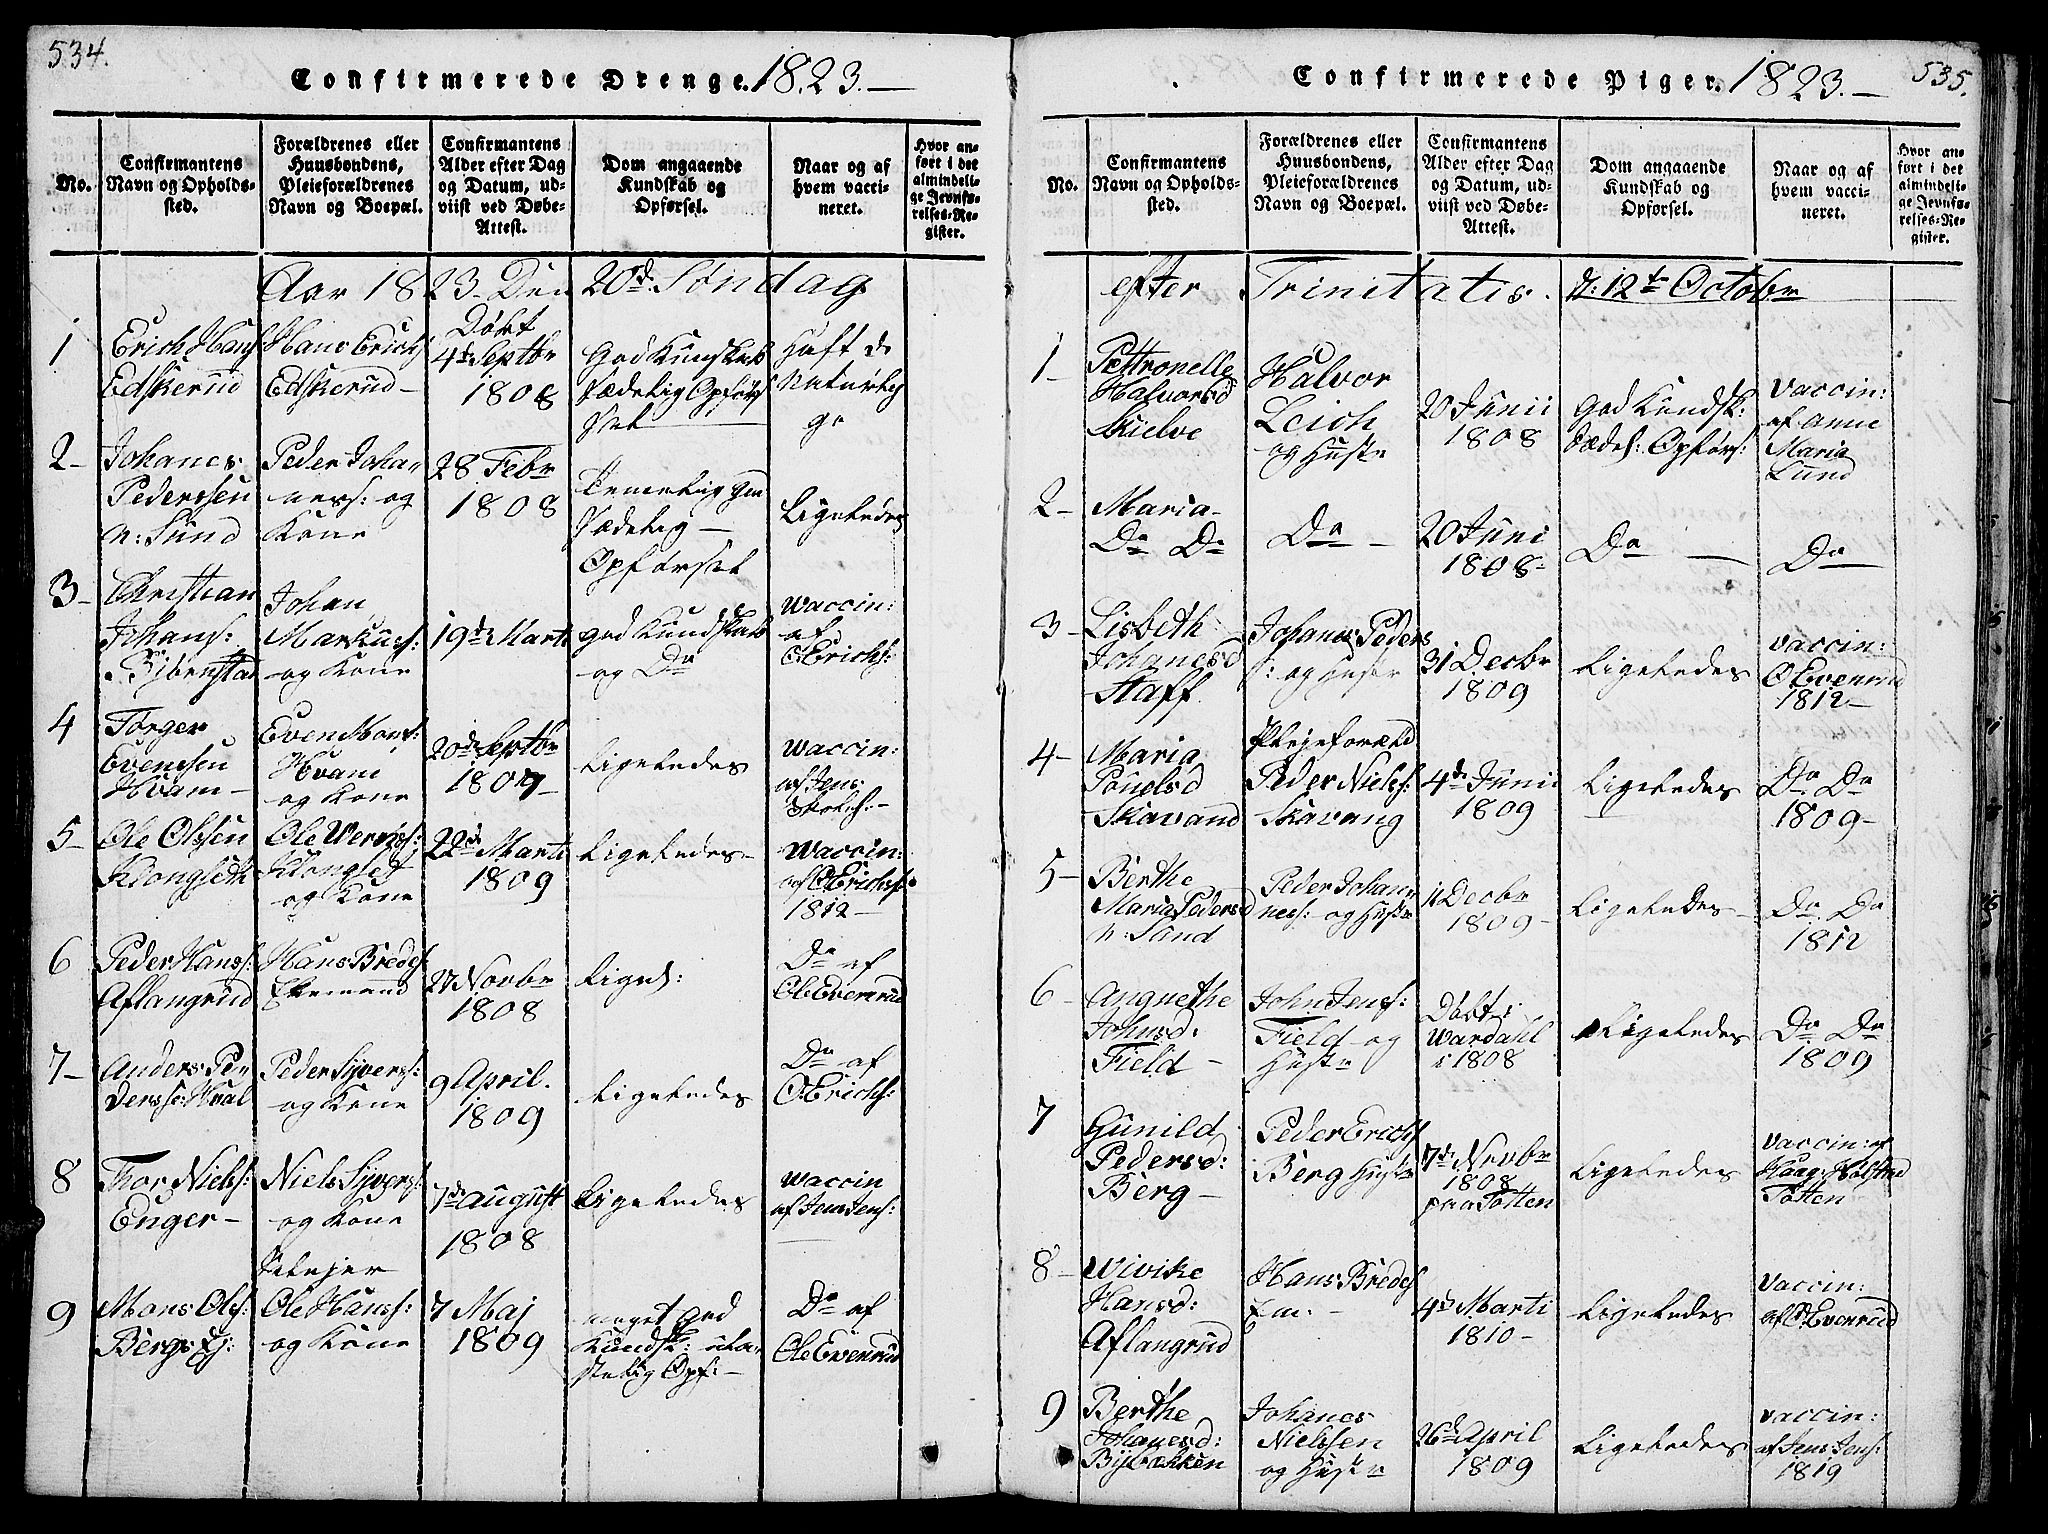 534.
Confirmerede Drenge. 1823.—
No.
Confirmantens
Navn og Opholds-
sted.
Forældrenes eller
Huusbondens,
Pleieforældrenes
Navn og Boepæl.
Confirmantens
Alder efter Dag
og Datum, ud-
viist ved Døbe-
Attest.
Dom angaaende
Kundskab og
Opførsel.
Naar og af
hvem vacci-
neret.
Hvor an-
ført i det
almindeli-
ge Jevnfø-
relses-Re-
gister.
Aar 1823. Den 20de Søndag
1
Erich Hans
Edskerüd
Hans Erichs
Edskerud—
Døbt
4de Septbr
1808
God Kundskab
Sædelig Opførs
sel
Haft de
Naturlig
ge
2-
Johanes
Pederssen
n: Sund
Peder Joha-
ness: og
Kone
28 Febr
1808
Sædelig—
Opførsel
Ligeledes
3-
Christian
Johans:
Johan
Markuss:
og Kone
19de Marti
god Kundskab
og Do
Waccin:
af
O: Erichs:
4
Torger
Evenssen
Hvam—
Even Mons:
Hvam
og Kone
20de Septbr
1807
Ligeledes
Waccin:
af Jens
5-
Ole Olssen
Klongseth
Ole
Klongset
og Kone
22de Marti
1809
Ligeledes-
Waccin:
af O Erichs:
1812—
6
Peder Hanss:
Aflangrud
Hans Bredes:
Eiermand
27 Novbr
1808
Liged:
Do af
Ole Evenrüd
7-
Anders Pe-
derss: Hval
Peder Syvers:
og Kone
9 April.
1809
Ligeledes
Do af
O: Erichs:
8
Thor Niels:
Enger—
Niels Syvers:
og Kone
7de august
1808
Ligeledes
Waccin
af Jens Jens:
9
Mons Ols:
Bergs Ej:
Ole Hanss:
og Kone
7 Maj
1809
meget god
Kundsk: ula-
stelig Opf:—
Do af
Ole Evenrud
535.
Confirmerede Piger. 1823.—
No.
Confirmantens
Navn og Opholds-
sted.
Forældrenes eller
Huusbondens,
Pleieforældrenes
Navn og Boepæl.
Confirmantens
Alder efter Dag
og Datum, ud-
viist ved Døbe-
Attest.
Dom angaaende
Kundskab og
Opførsel.
Naar og af
hvem vacci-
neret.
Hvor an-
ført i det
almindeli-
ge Jevnfø-
relses-Re-
gister.
efter Trinitatis. d: 12te Octobr
1-
Pettronelle
Halvorsd
Skielve
Halvor
Leich
og Hustr
20 Junii
1808
God Kundsk:
Sædel: Opførs:
Vaccin:
af Anne
Maria
Lund
2-
Maria
Do Do
Do —
20 Juni
1808-
Do —
Do
3-
Lisbeth
Johanesd
Staff
Johanes Peders
s: og Hustr
31 Decbr
1809
Ligeledes
Vaccin:
O Evenrud
1812—
4-
Maria
Pouelsd
Skavand
Plejeforæld
Peder Niels:
Skavang
4de Junii
1809
Ligeledes
Do Do
1809-
5-
Berthe
Maria Pedersd
n: Sand
Peder Johan-
ness: og Hustr
11 Decbr
1809-
Ligeledes-
Do. Do
1812
6-
Angnethe
Johnsd:
Field—
John Jens:
Field og
Hustr
Døbt i
Wardahl
i 1808
Ligeledes
Do Do
1809
7
Gunild
Pedersd:
Berg—
Peder Erichs
Berg Hustr
7de Novbr
1808
paa Totten
Ligeledes
Vaccin: af
Totten
8-
Wivike
Hansd:
Aflangrud
Hans Bredes
Em. -
4de Marti
1810-
Ligeledes
Vaccin:
af O Evenrud
9
Berthe
Johanesd:
Bysbækken
Johanes
Nielssen
og Hustr
26de April
1809
Ligeledes
Vaccin:
af Jens Jens:
1819